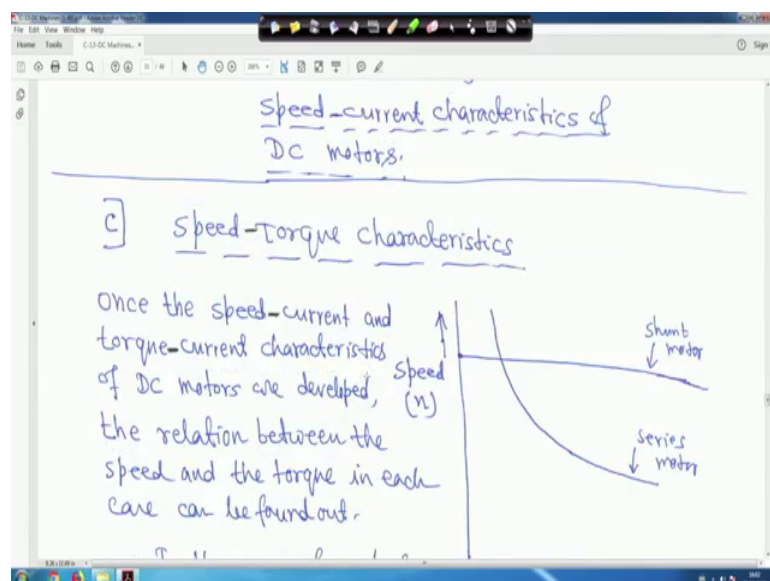 File Edit View Window Help
Home Tools C-13-DC Machines... × Sign
Speed-current characteristics of
DC motors.
C] Speed-Torque characteristics
Once the speed-current and
torque-current characteristics
of DC motors are developed,
the relation between the
speed and the torque in each
care can be found out.
Speed
(n)
Shunt
motor
Series
motor